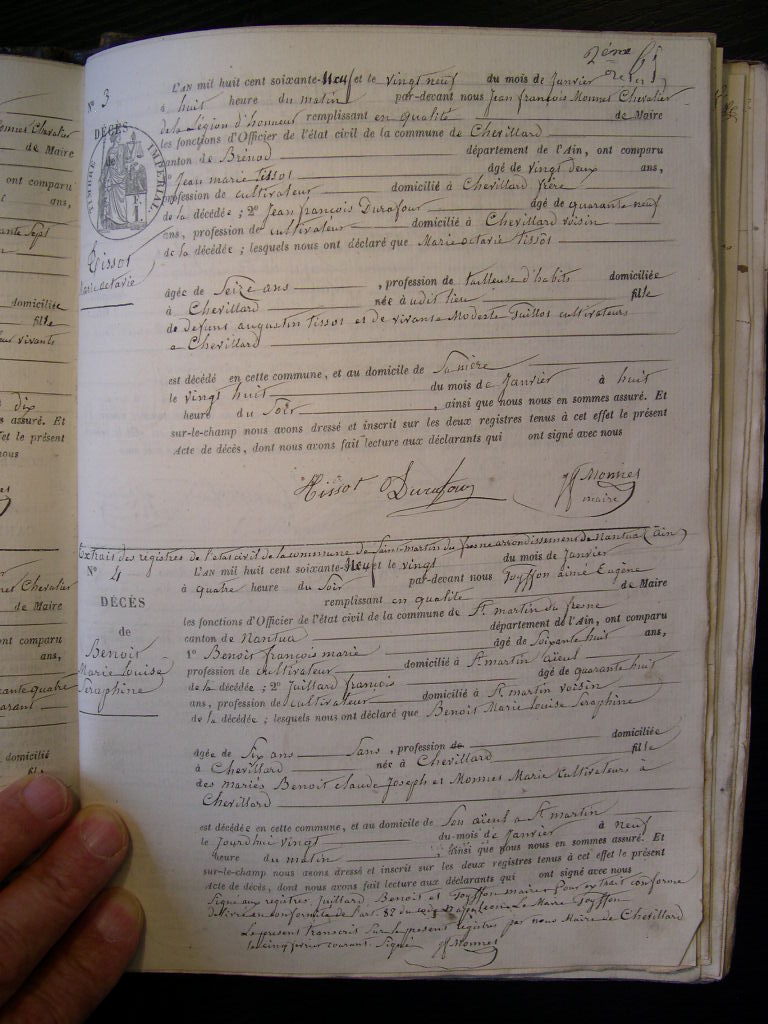 2ème
N° 3
L'AN mil huit cent soixante-Neuf et le vingt neuf du mois de Janvier
à huit heure du matin par-devant nous Jean françois Monnes Chevalier
de la Légion d'honneur remplissant en qualité de Maire
les fonctions d'Officier de l'état civil de la commune de Chevillard
canton de Brénod département de l'Ain, ont comparu
1° Jean marie tissot âgé de vingt deux ans,
profession de cultivateur domicilié à Chevillard frère
de la décédée ; 2° Jean françois Durafour âgé de quarante neuf
ans, profession de cultivateur domicilié à Chevillard voisin
de la décédée ; lesquels nous ont déclaré que Marie octavie tissot
DÉCÈS
TIMBRE IMPÉRIAL
Tissot
Marie octavie
âgée de Seize ans , profession de tailleuse d'habits domiciliée
à Chevillard née à udit lieu fille
de defunt augustin tissot et de vivante Modeste Guillot cultivateurs
a Chevillard
est décédé en cette commune, et au domicile de Sa mère
le vingt huit du mois de Janvier à huit
heure du Soir , ainsi que nous nous en sommes assuré. Et
sur-le-champ nous avons dressé et inscrit sur les deux registres tenus à cet effet le présent
Acte de décès, dont nous avons fait lecture aux déclarants qui ont signé avec nous
Tissot Durafour Monnes
maire
Extrait des registres de l'etat civil de la commune de Saint-martin du fresne arrondissement de Nantua (Ain)
N° 4
L'AN mil huit cent soixante-Neuf et le vingt du mois de Janvier
à quatre heure du Soir par-devant nous Goyffon aimé Eugène
remplissant en qualité de Maire
les fonctions d'Officier de l'état civil de la commune de St. martin du fresne
canton de Nantua département de l'Ain, ont comparu
1° Benoit françois marie âgé de Soixante huit ans,
profession de cultivateur domicilié à St. martin aïeul
de la décédée ; 2° Juillard françois âgé de quarante huit
ans, profession de cultivateur domicilié à St. martin voisin
de la décédée ; lesquels nous ont déclaré que Benoit Marie Louise Seraphine
DÉCÈS
de
Benoit
Marie Louise
Seraphine
âgée de Six ans Sans , profession de domiciliée
à Chevillard née à Chevillard fille
des mariés Benoit claude Joseph et Monnes Marie Cultivateurs à
Chevillard
est décédée en cette commune, et au domicile de Son aïeul a St. martin
le Jourdhui vingt du mois de Janvier à neuf
heure du matin , ainsi que nous nous en sommes assuré. Et
sur-le-champ nous avons dressé et inscrit sur les deux registres tenus à cet effet le présent
Acte de décès, dont nous avons fait lecture aux déclarants qui ont signé avec nous
Signé aux registres, Juillard, Benoit et Goyffon maire. Pour extrait conforme
délivré en conformité de l'art. 82 du code Napoléon Le Maire Goyffon
Le present transcrit Sur le present registre par nous Maire de Chevillard
le cinq fevrier courant Signé Monnes